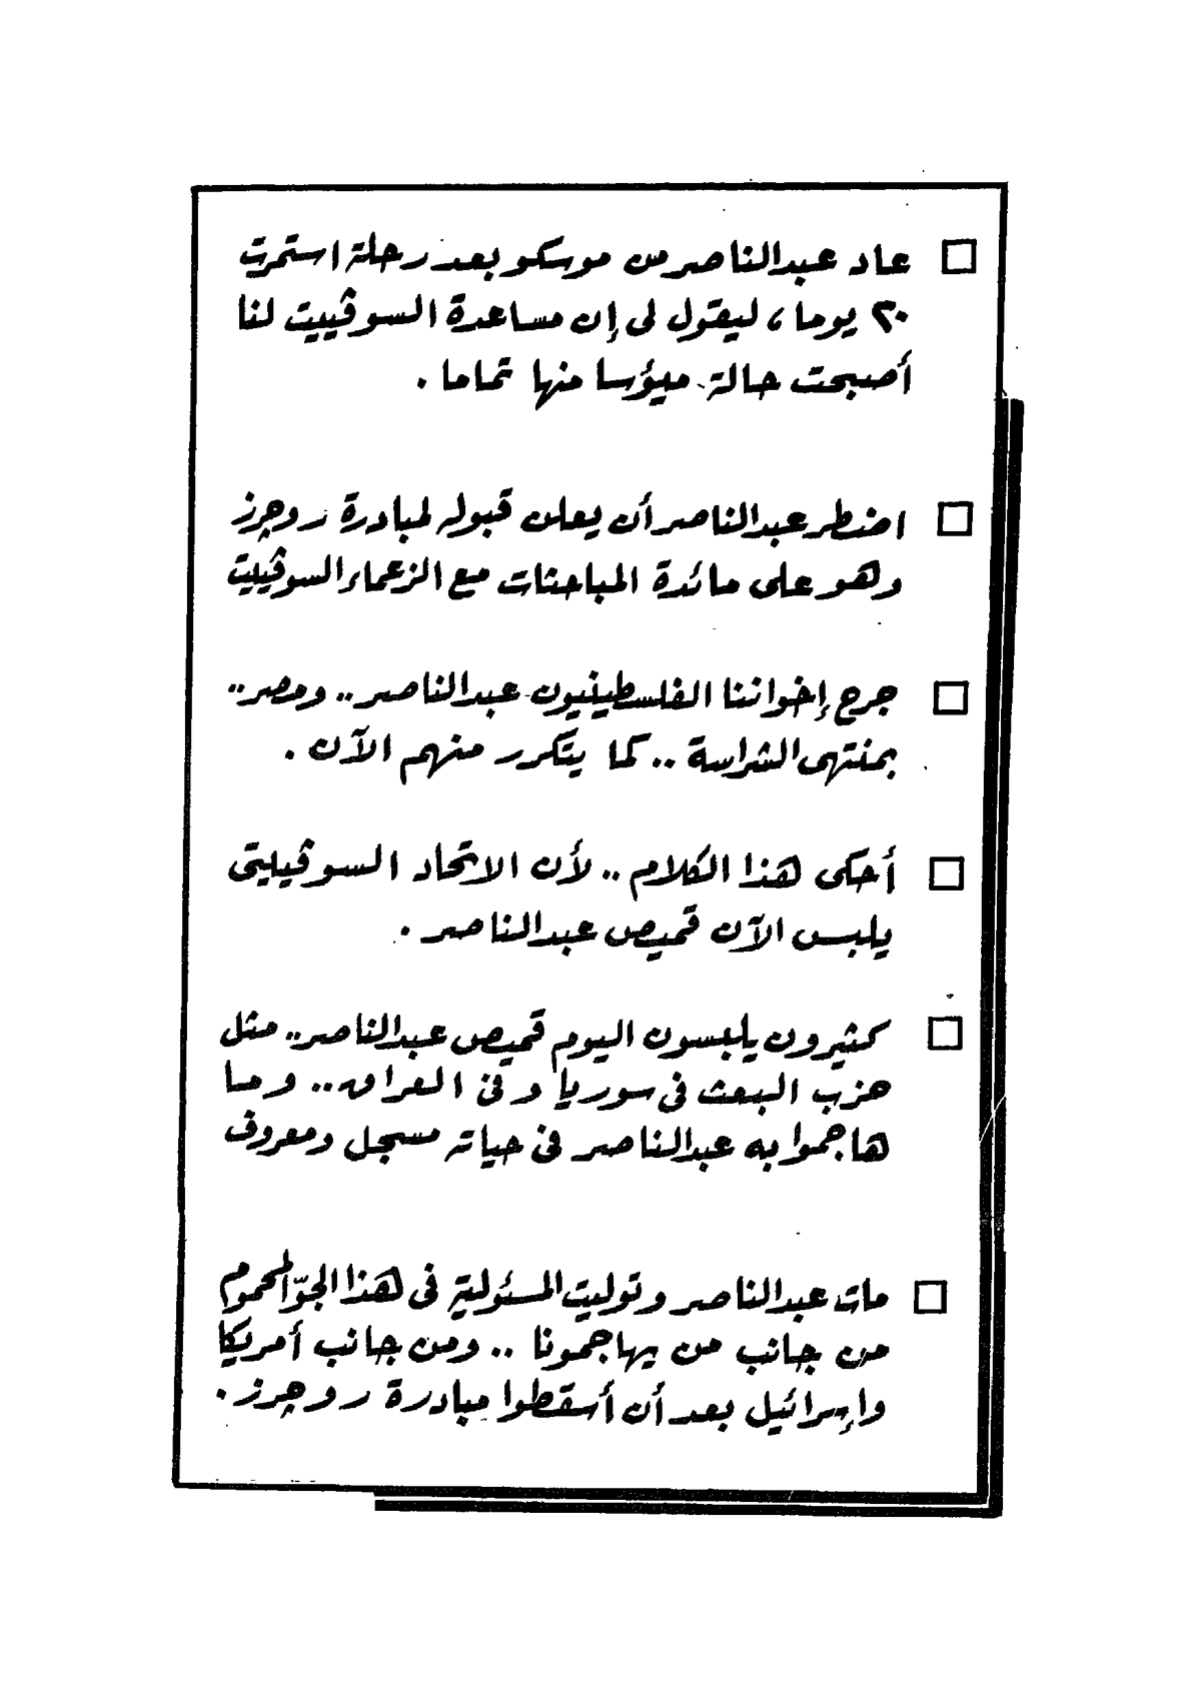 □ عاد عبدالناصر من موسكو بعد رحلة استمرت
٢٠ يوما، ليقول لى إن مساعدة السوڤييت لنا
أصبحت حالة ميؤسا منها تماما .
□ اضطر عبدالناصر أن يعلن قبوله لمبادرة روچرز
وهو على مائدة المباحثات مع الزعماء السوڤييت
□ جرح إخواننا الفلسطينيون عبدالناصر .. ومصر ..
بمنتهى الشراسة .. كما يتكرر منهم الآن .
□ أحكى هذا الكلام .. لأن الاتحاد السوڤييتى
يلبس الآن قميص عبدالناصر .
□ كثيرون يلبسون اليوم قميص عبدالناصر .. مثل
حزب البعث فى سوريا وفى العراق .. وما
هاجموا به عبدالناصر فى حياته مسجل ومعروف
□ مات عبدالناصر وتوليت المسئولية فى هذا الجوّ المحموم
من جانب من يهاجموننا .. ومن جانب أمريكا
وإسرائيل بعد أن أسقطوا مبادرة روچرز .